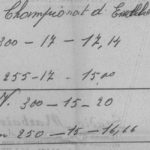 Championat d'
300 - 17 - 17,14
255 - 17 - 15,00
300 - 15 - 20
250 - 15 - 16,66